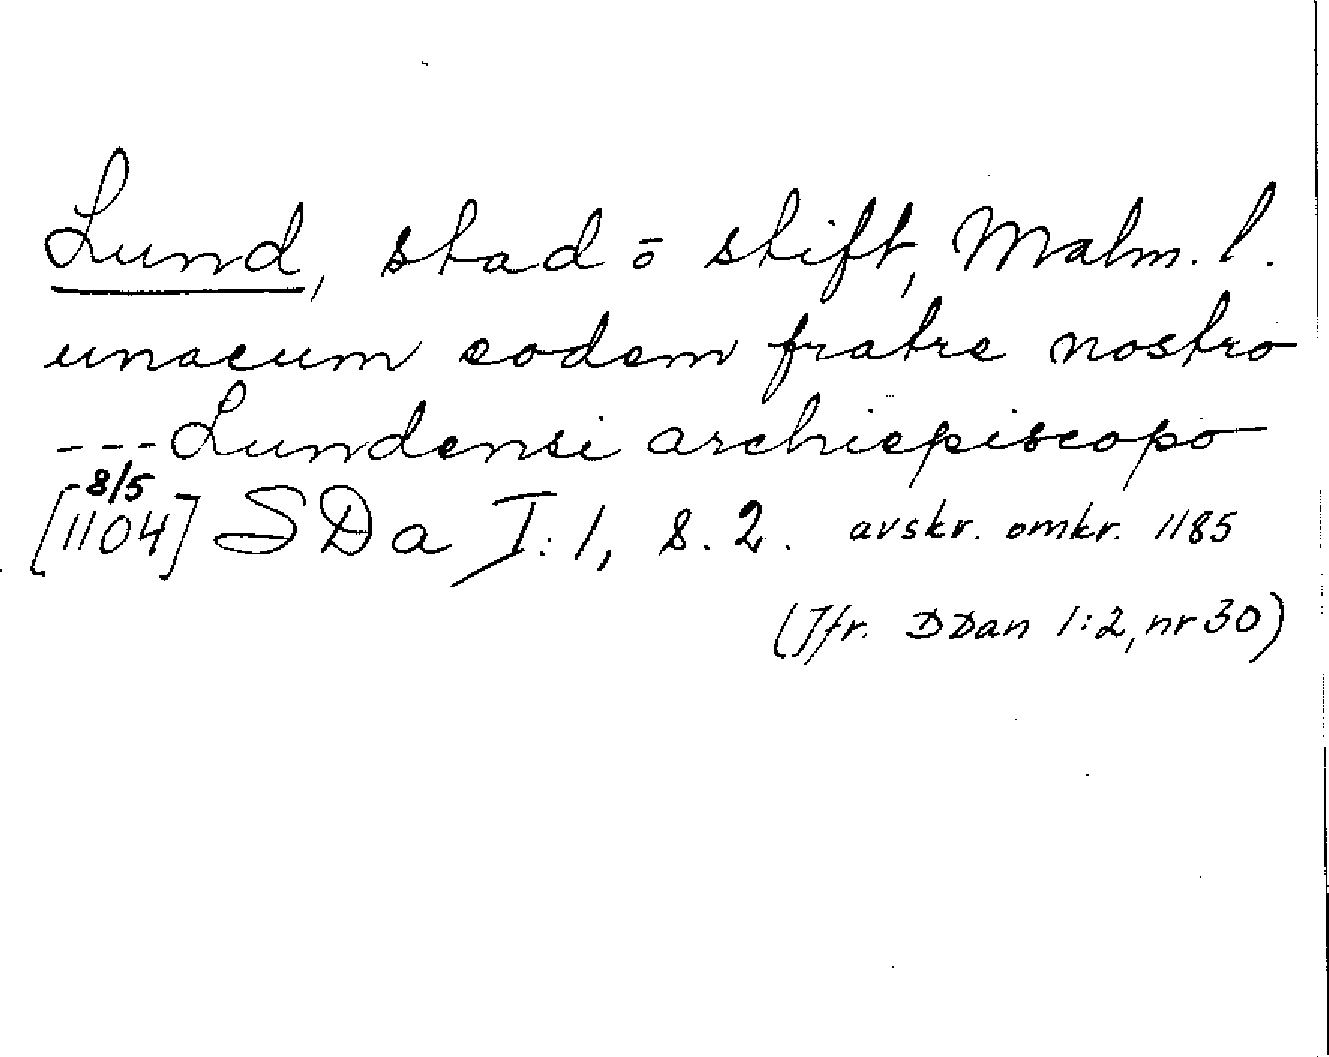 Lund, stad o stift, Malm. l.
unacum eodem fratre nostro
--- Lundensi archiepiscopo
8/5
[1104] SDa I:1, s. 2. avskr. omkr. 1185
(Jfr. DDan 1:2, nr 30)